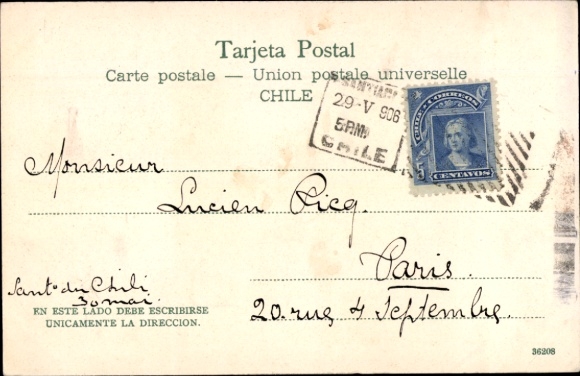 Tarjeta Postal
Carte postale — Union postale universelle
CHILE
SANTIAGO
29·V 906
5PM
CHILE
CHILE CORREOS
5 CENTAVOS
Monsieur
Lucien Picq.
Paris.
20. rue 4 Septembre
Santo du Chili
30 mai.
EN ESTE LADO DEBE ESCRIBIRSE
UNICAMENTE LA DIRECCION.
36208